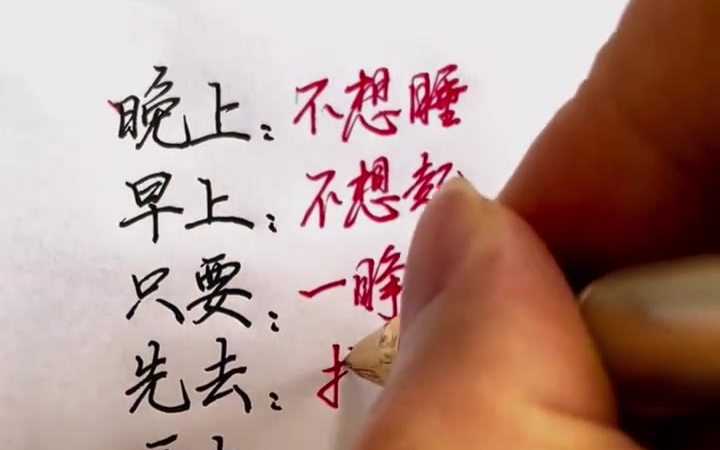 晚上：不想睡
早上：不想
只要：一睁
先去：